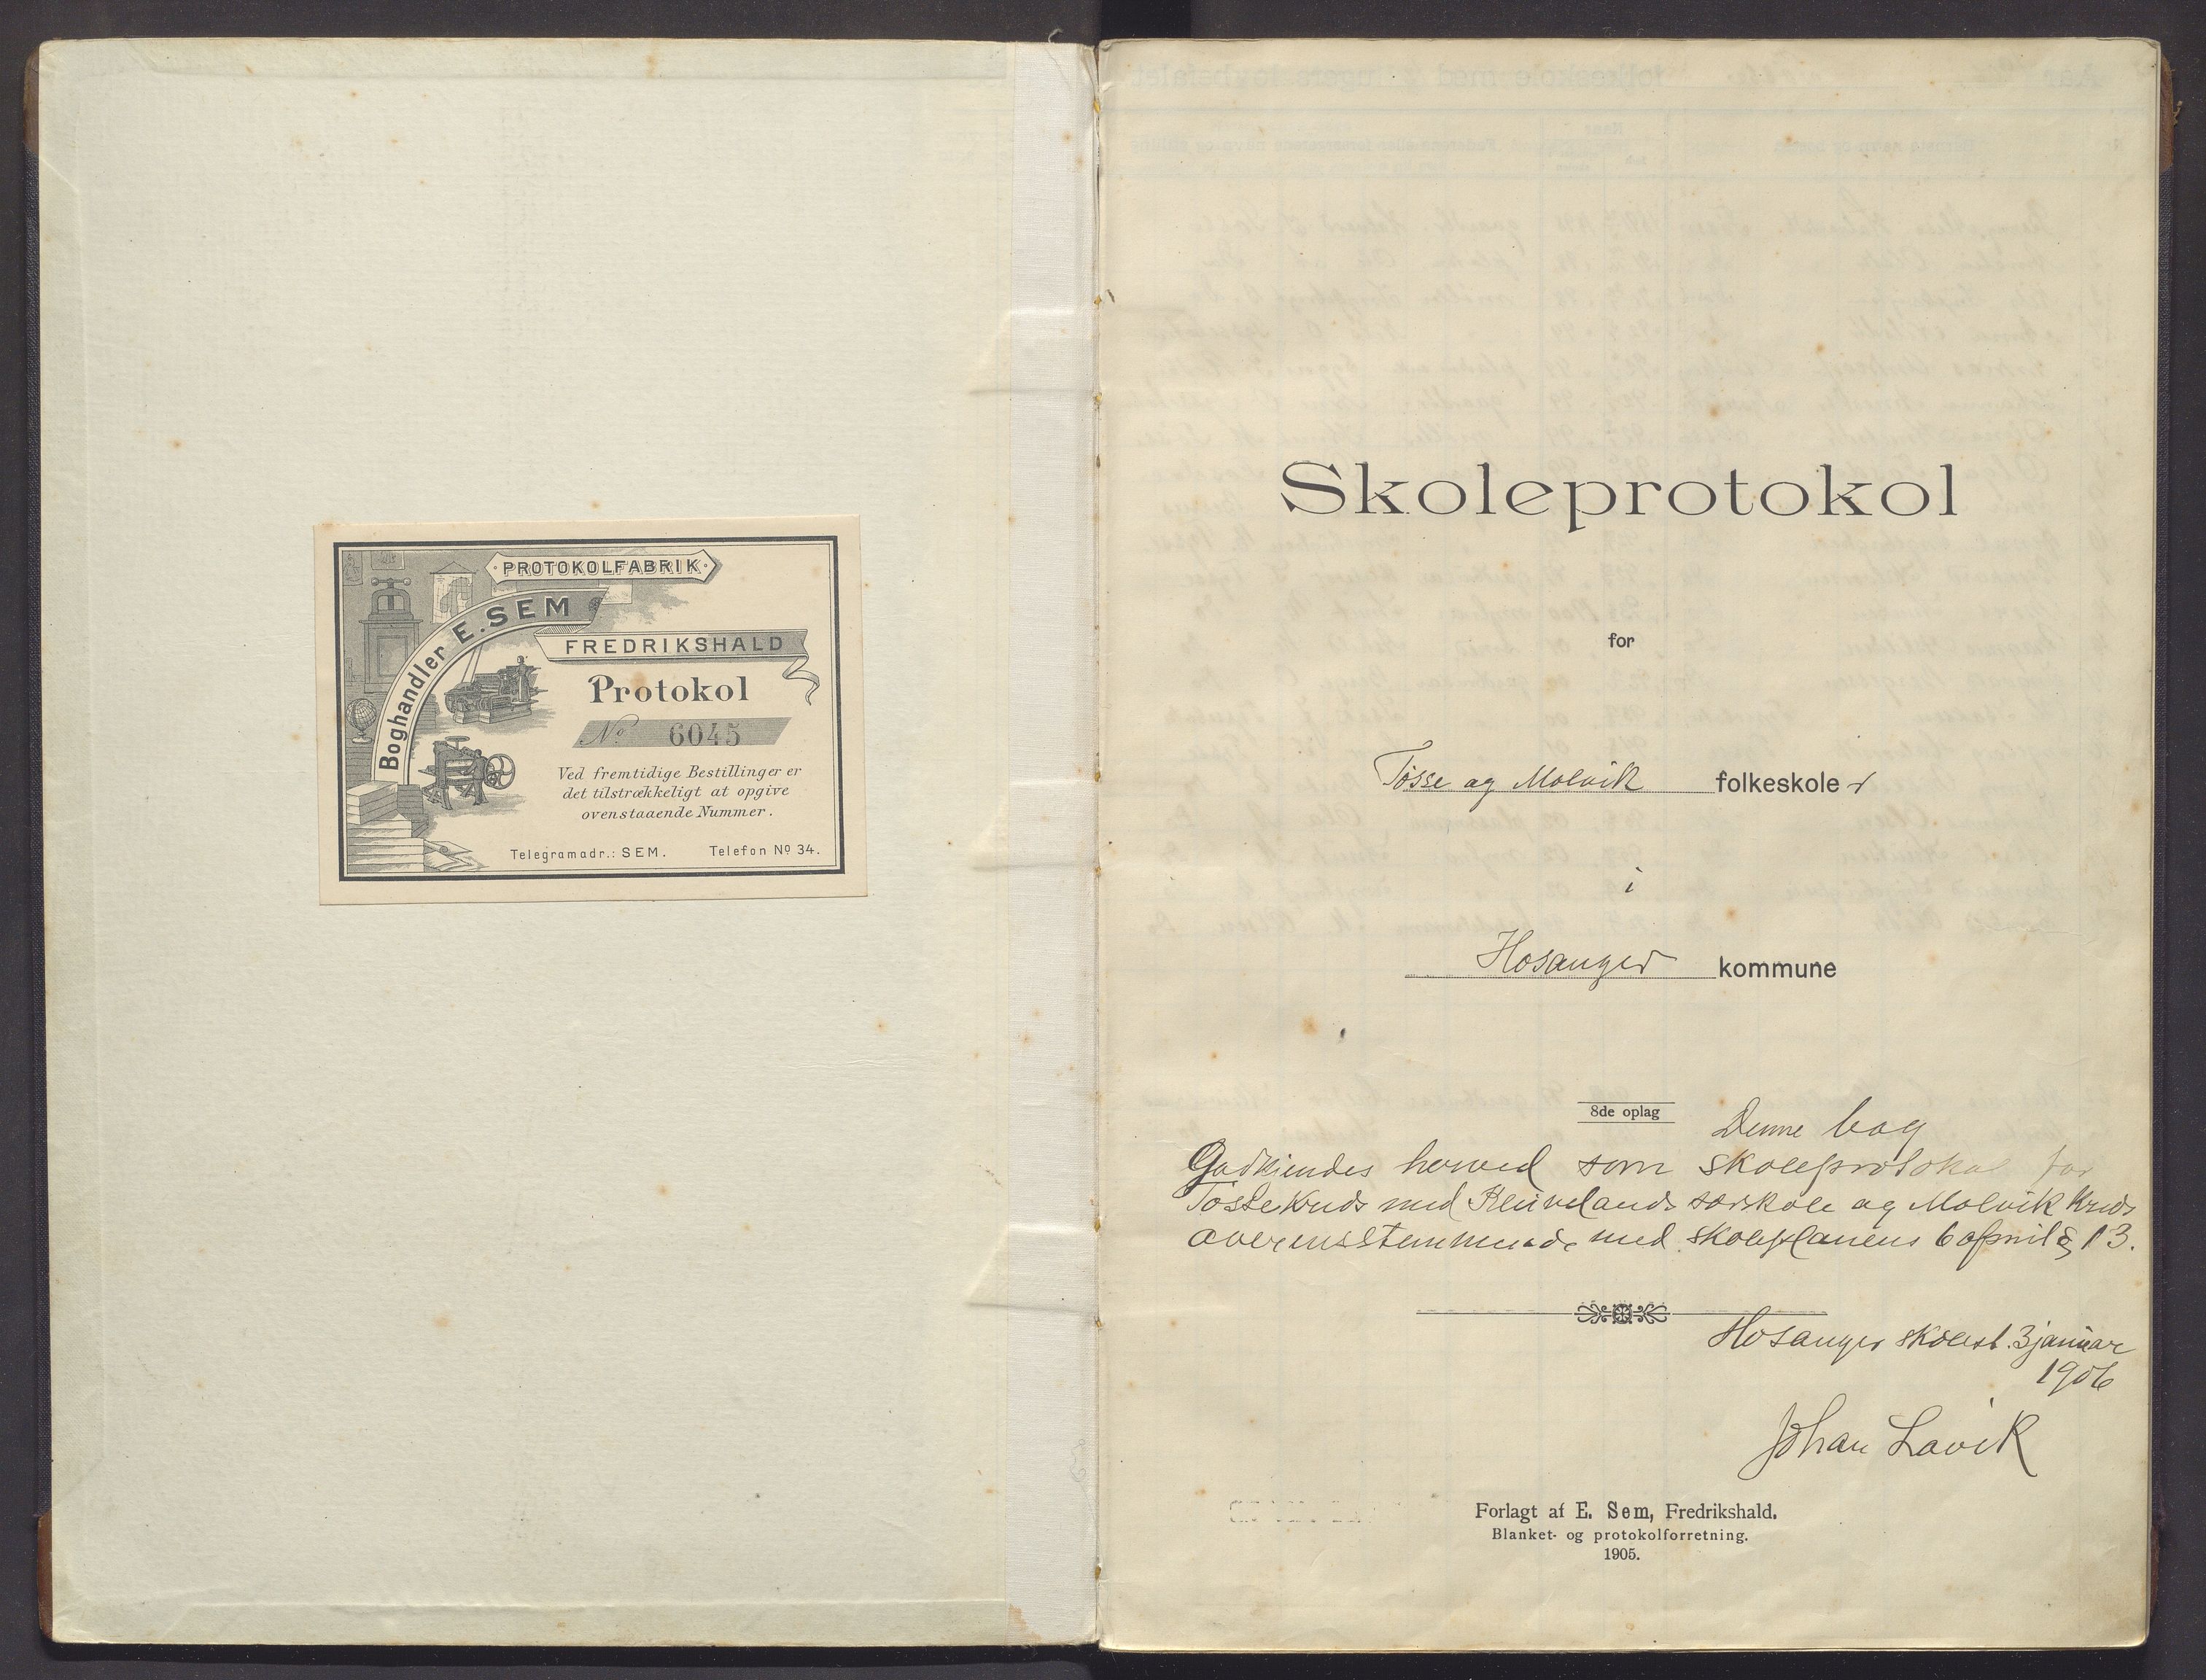 PROTOKOLFABRIK
Boghandler E. SEM
FREDRIKSHALD
Protokol
No 6045
Ved fremtidige Bestillinger er
det tilstrækkeligt at opgive
ovenstaaende Nummer.
Telegramadr.: SEM. Telefon No 34.
Skoleprotokol
for
Tøsse og Molvik folkeskoler
i
Hosanger kommune
8de oplag
Denne bog
Godkjendes herved som skoleprotokol for
Tøssekreds med særskole og Molvik kreds
overensstemmende med skoleplanens 6 april § 13.
Hosanger skolest. 3 januar
1906
Johan Lavik
Forlagt af E. Sem, Fredrikshald.
Blanket- og protokolforretning.
1905.